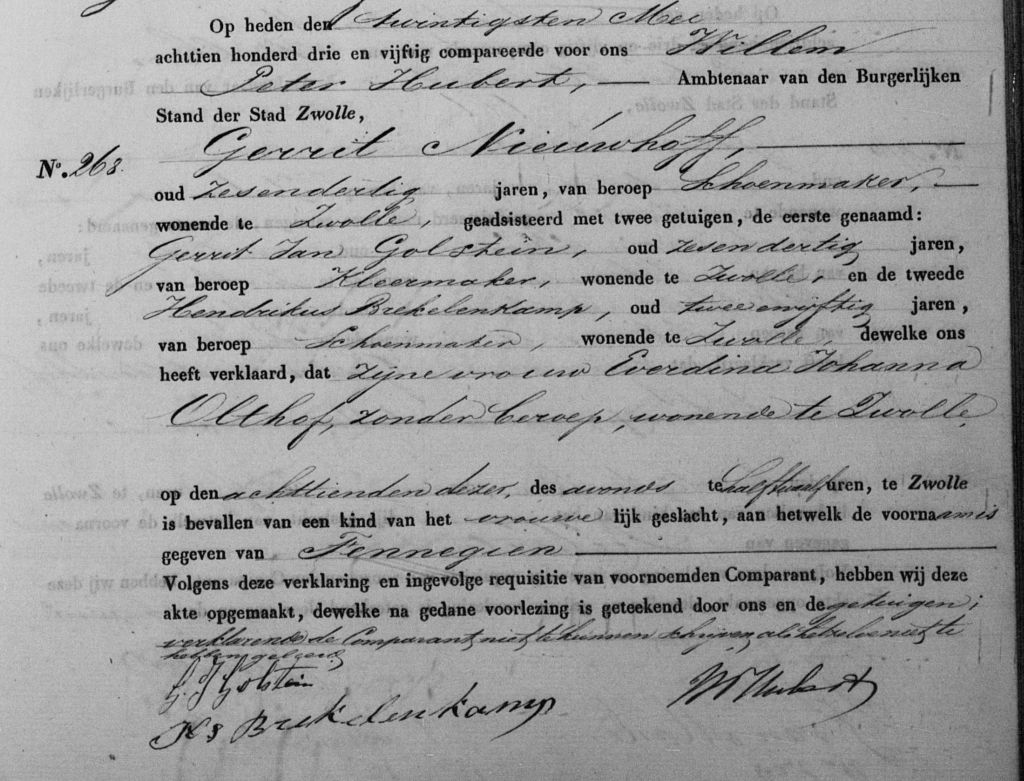 Op heden den twintigsten Mei
achttien honderd drie en vijftig compareerde voor ons Willem
Peter Hubert, — Ambtenaar van den Burgerlijken
Stand der Stad Zwolle,
Gerrit Nieuwhoff, —
No. 268.
oud zesendertig jaren, van beroep Schoenmaker, —
wonende te Zwolle, geadsisteerd met twee getuigen, de eerste genaamd:
Gerrit Jan Golstein, oud zesendertig jaren,
van beroep Kleermaker, wonende te Zwolle, en de tweede
Hendrikus Brekelenkamp, oud twee en vijftig jaren,
van beroep Schoenmaker, wonende te Zwolle, dewelke ons
heeft verklaard, dat zijne vrouw Everdina Johanna
Olthof, zonder beroep, wonende te Zwolle,
op den achttienden dezer, des avonds te half twaalf uren, te Zwolle
is bevallen van een kind van het vrouwelijk geslacht, aan hetwelk de voornaam is
gegeven van Fennegien —
Volgens deze verklaring en ingevolge requisitie van voornoemden Comparant, hebben wij deze
akte opgemaakt, dewelke na gedane voorlezing is geteekend door ons en de getuigen;
verklarende de Comparant niet te kunnen schrijven als hetzelve niet te
hebben geleerd
G. J. Golstein
Hs Brekelenkamp
WP Hubert